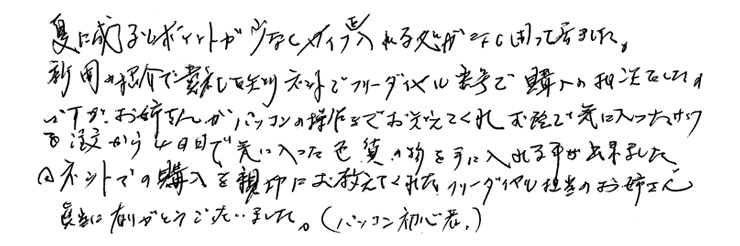 夏に成るとポイントが少なくサイズ 入れる処が なく困って居ました。
新聞の紹介で貴社を知りネットでフリーダイヤル番号で購入の相談をしたの
ですが、お姉さんがパソコンの操作までお教えてくれ お陰で気に入ったサイズ
を注文から4日目で気に入った色質の物を手に入れる事が出来ました
ネットでの購入を親切にお教えてくれたフリーダイヤル担当のお姉さん
真当にありがとうございました。(パソコン初心者。)